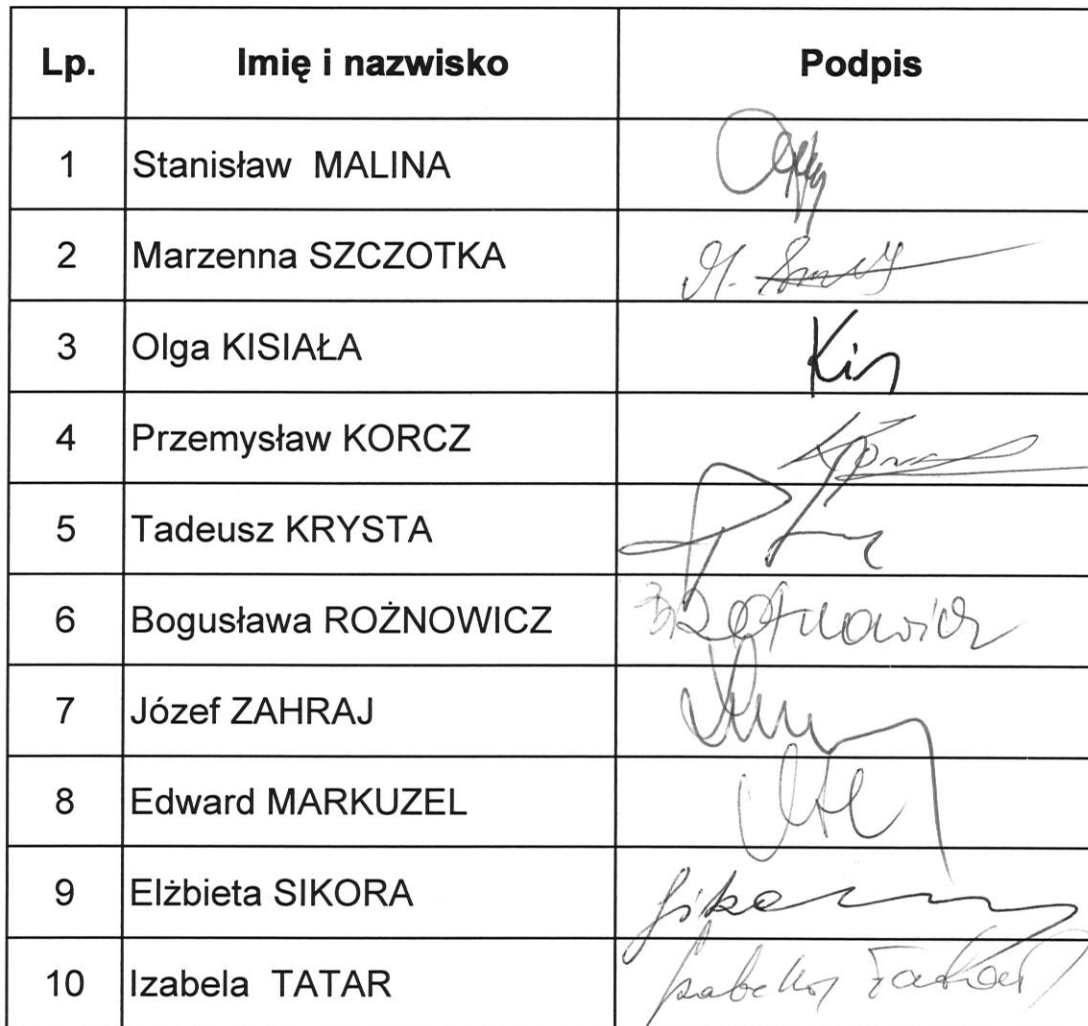 Lp. Imię i nazwisko Podpis
1 Stanisław MALINA
2 Marzenna SZCZOTKA
3 Olga KISIAŁA Kis
4 Przemysław KORCZ
5 Tadeusz KRYSTA
6 Bogusława ROŻNOWICZ BRożnowicz
7 Józef ZAHRAJ
8 Edward MARKUZEL
9 Elżbieta SIKORA Sikora
10 Izabela TATAR Izabela Tatar